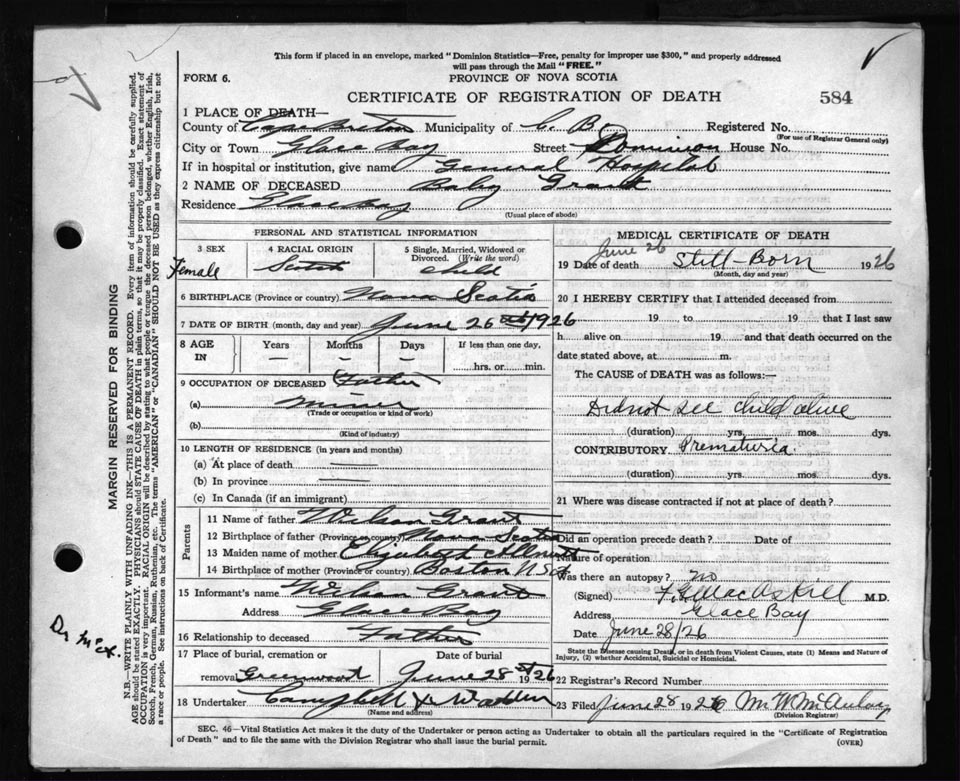 This form if placed in an envelope, marked "Dominion Statistics—Free, penalty for improper use $300," and properly addressed
will pass through the Mail "FREE."
FORM 6.
PROVINCE OF NOVA SCOTIA
CERTIFICATE OF REGISTRATION OF DEATH
584
1 PLACE OF DEATH—
County of Cape Breton Municipality of C. B. Registered No.
(For use of Registrar General only)
City or Town Glace Bay Street Dominion House No.
If in hospital or institution, give name General Hospital
2 NAME OF DECEASED Baby Grant
Residence Glace Bay
(Usual place of abode)
PERSONAL AND STATISTICAL INFORMATION
3 SEX Female
4 RACIAL ORIGIN Scotch
5 Single, Married, Widowed or Divorced. (Write the word) child
6 BIRTHPLACE (Province or country) Nova Scotia
7 DATE OF BIRTH (month, day and year) June 26th 1926
8 AGE IN Years — Months — Days — If less than one day, hrs. or min.
9 OCCUPATION OF DECEASED Father
(a) miner
(Trade or occupation or kind of work)
(b)
(Kind of industry)
10 LENGTH OF RESIDENCE (in years and months)
(a) At place of death —
(b) In province —
(c) In Canada (if an immigrant)
Parents
11 Name of father Wilson Grant
12 Birthplace of father (Province or country) Nova Scotia
13 Maiden name of mother Elizabeth
14 Birthplace of mother (Province or country) Boston
15 Informant's name Wilson Grant
Address Glace Bay
16 Relationship to deceased Father
17 Place of burial, cremation or removal Greenwood Date of burial June 28 1926
18 Undertaker Campbell &
(Name and address)
MEDICAL CERTIFICATE OF DEATH
June 26
19 Date of death Still-Born 1926
(Month, day and year)
20 I HEREBY CERTIFY that I attended deceased from
19 to 19 that I last saw
h alive on 19 and that death occurred on the
date stated above, at m.
The CAUSE of DEATH was as follows:—
Did not see child alive
(duration) yrs. mos. dys.
CONTRIBUTORY Prematuria
(duration) yrs. mos. dys.
21 Where was disease contracted if not at place of death?
Did an operation precede death? Date of
Nature of operation
Was there an autopsy? no
(Signed) MacAskill M.D.
Address Glace Bay
Date June 28/26
State the Disease causing Death, or in death from Violent Causes, state (1) Means and Nature of
Injury, (2) whether Accidental, Suicidal or Homicidal.
22 Registrar's Record Number
23 Filed June 28 1926 M. W. McAulay
(Division Registrar)
SEC. 46—Vital Statistics Act makes it the duty of the Undertaker or person acting as Undertaker to obtain all the particulars required in the "Certificate of Registration
of Death" and to file the same with the Division Registrar who shall issue the burial permit.
(OVER)
MARGIN RESERVED FOR BINDING
N.B.—WRITE PLAINLY WITH UNFADING INK—THIS IS A PERMANENT RECORD. Every item of information should be carefully supplied.
AGE should be stated EXACTLY. PHYSICIANS should STATE CAUSE OF DEATH in plain terms, so that it may be properly classified. Exact statement of
OCCUPATION is very important. RACIAL ORIGIN will be described by stating to what people or tongue the deceased person belonged, whether English, Irish,
Scotch, French, German, Russian, Ruthenian, etc. The terms "AMERICAN" or "CANADIAN" SHOULD NOT BE USED as they express citizenship but not
a race or people. See instructions on back of Certificate.